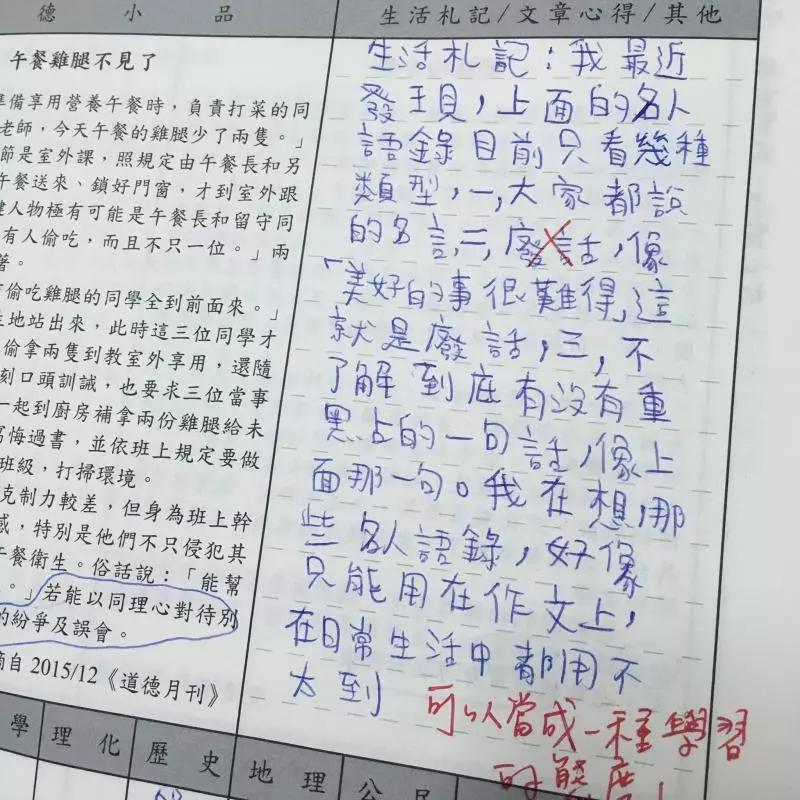 德 小 品
午餐雞腿不見了
準備享用營養午餐時，負責打菜的同
老師，今天午餐的雞腿少了兩隻。」
節是室外課，照規定由午餐長和另
午餐送來、鎖好門窗，才到室外跟
鍵人物極有可能是午餐長和留守同
有人偷吃，而且不只一位。」兩
著。
偷吃雞腿的同學全到前面來。」
地站出來，此時這三位同學才
偷拿兩隻到教室外享用，還隨
刻口頭訓誡，也要求三位當事
一起到廚房補拿兩份雞腿給未
寫悔過書，並依班上規定要做
班級，打掃環境。
克制力較差，但身為班上幹
感，特別是他們不只侵犯其
午餐衛生。俗話說：「能幫
。」若能以同理心對待別
的紛爭及誤會。
摘自 2015/12《道德月刊》
生活札記/文章心得/其他
生活札記：我最近
發現，上面的名人
語錄目前只看幾種
類型，一，大家都說
的名言，二，廢話，像
「美好的事很難得」這
就是廢話，三，不
了解到底有沒有重
點的一句話，像上
面那一句。我在想，那
些名人語錄，好像
只能用在作文上，
在日常生活中都用不
太到
可以當成一種學習
的態度！
學 理化 歷史 地理 公民